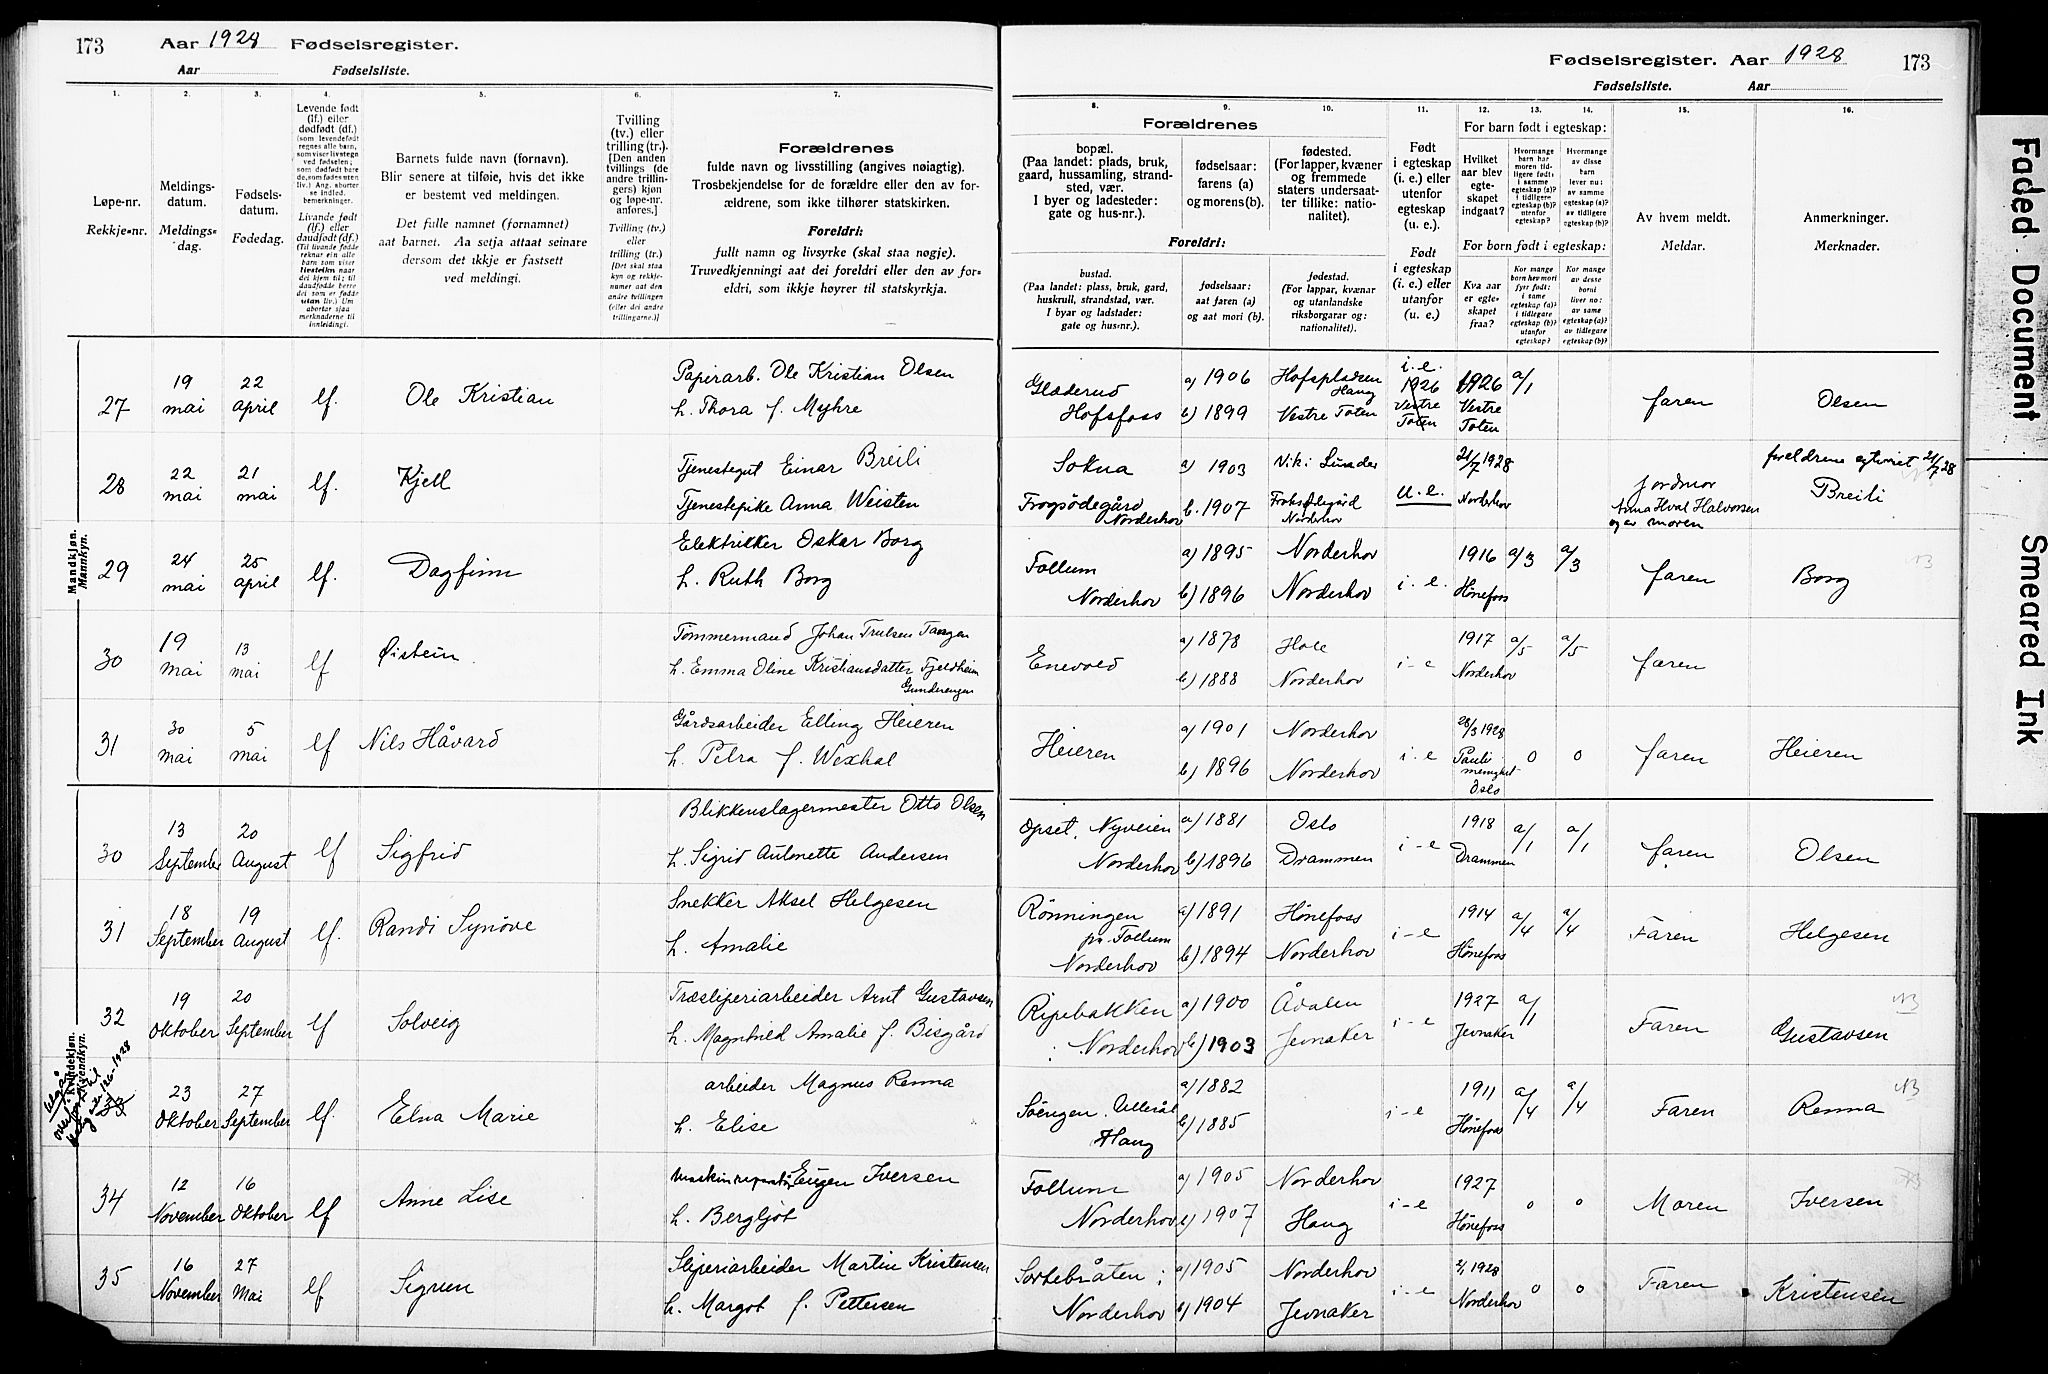 173 Aar 1928 Fødselsregister.
Aar Fødselsliste.
1. 2. 3. 4. 5. 6. 7.
Løpe-nr.
Rekkje-nr.
Meldings-
datum.
Meldings-
dag.
Fødsels-
datum.
Fødedag.
Levende født
(lf.) eller
dødfødt (df.)
Livande fødd
(lf.) eller
daudfødt (df.)
Barnets fulde navn (fornavn).
Blir senere at tilføie, hvis det ikke
er bestemt ved meldingen.
Det fulle namnet (fornamnet)
aat barnet. Aa setja attaat seinare
dersom det ikkje er fastsett
ved meldingi.
Tvilling
(tv.) eller
trilling (tr.).
[Den anden
tvillings (de
andre trillin-
gers) kjøn
og løpe-nr.
anføres.]
Tvilling (tv.)
eller
trilling (tr.)
[Det skal staa
kyn og rekkje-
numer aat den
andre tvillingen
(eller dei andre
trillingarne.)]
Forældrenes
fulde navn og livsstilling (angives nøiagtig).
Trosbekjendelse for de forældre eller den av for-
ældrene, som ikke tilhører statskirken.
Foreldri:
fullt namn og livsyrke (skal staa nøgje).
Truvedkjenningi aat dei foreldri eller den av for-
eldri, som ikkje høyrer til statskyrkja.
Mandkjøn.
Mannkyn.
27 19 mai 22 april lf. Ole Kristian
Papirarb. Ole Kristian Olsen
h. Thora f. Myhre
28 22 mai 21 mai lf. Kjell
Tjenestegut Einar Breili
Tjenestepike Anna Weisten
29 24 mai 25 april lf. Dagfinn
Elektrikker Oskar Borg
h. Ruth Borg
30 19 mai 13 mai lf Øistein
Tømmermand Johan Trulsen
h. Emma Oline Kristiansdatter Fjeldheim
Gunderengen
31 30 mai 5 mai lf Nils Håvard
Gårdsarbeider Elling Heieren
h. Petra f. Wexhal
Kvindekjøn.
Kvendkyn.
30 13 September 20 August lf Sigfrid
Blikkenslagermester Otto Olsen
h. Sigrid Antonette Andersen
31 18 September 19 August lf. Randi Synøve
Snekker Aksel Helgesen
h. Amalie
32 19 Oktober 20 September lf Solveig
Træsliperiarbeider Arnt Gustavsen
h. Magnhild Amalie f. Bisgård
33 23 Oktober 27 September lf. Elna Marie
arbeider Magnus Renna
h. Elise
34 12 November 16 Oktober lf Anne Lise
Eugen Iversen
h. Bergljot
35 16 November 27 Mai lf Sigrun
Sliperiarbeider Martin Kristensen
h. Margot f. Pettersen
Fødselsregister. Aar 1928 173
Fødselsliste. Aar
8. 9. 10. 11. 12. 13. 14. 15. 16.
Forældrenes
bopæl.
(Paa landet: plads, bruk,
gaard, hussamling, strand-
sted, vær.
I byer og ladesteder:
gate og hus-nr.).
fødselsaar:
farens (a)
og morens (b).
fødested.
(For lapper, kvæner
og fremmede
staters undersaat-
ter tillike: natio-
nalitet).
Foreldri:
bustad.
(Paa landet: plass, bruk, gard,
huskrull, strandstad, vær.
I byar og ladstader:
gate og hus-nr.).
fødselsaar:
aat faren (a)
og aat mori (b).
fødestad.
(For lappar, kvænar
og utanlandske
riksborgarar og:
nationalitet).
Født
i egteskap
(i. e.) eller
utenfor
egteskap
(u. e.).
Født
i egteskap
(i. e.) eller
utanfor
egteskap
(u. e.)
For barn født i egteskap:
Hvilket
aar blev
egte-
skapet
indgaat?
For born født i egteskap:
Kva aar
er egte-
skapet
fraa?
Av hvem meldt.
Meldar.
Anmerkninger.
Merknader.
Glæderud
Hofsfoss
a) 1906
b) 1899
Hofspladsen
Haug
Vestre Toten
i. e.
1926
Vestre
Toten
1926
Vestre
Toten
a/1
faren Olsen
Sokna
Frogsødegård
Norderhov
a) 1903
b. 1907
Norderhov
u. e.
21/7 1928
Norderhov
jordmor
Anna Hval Halvorsen
og av moren
foreldrene egteviet 21/7 28
Breili
Follum
Norderhov
a) 1895
b) 1896
Norderhov
Norderhov
i. e.
1916
Hønefoss
a/3 a/3
faren Borg
Enevold
a) 1878
b) 1888
Hole
Norderhov
i - e
1917
Norderhov
a/5 a/5
faren
Heieren
a) 1901
b) 1896
Norderhov
Norderhov
i - e
28/3 1928
Pauli
menighet
Oslo
0 0
faren Heieren
Opset, Nyveien
Norderhov
a) 1881
b) 1896
Oslo
Drammen
i - e
1918
Drammen
a/1 a/1
faren Olsen
Rønningen
pr. Follum
Norderhov
a) 1891
b) 1894
Hønefoss
Norderhov
i - e
1914
Hønefoss
a/4 a/4
Faren Helgesen
Ripebakken
Norderhov
a) 1900
b) 1903
Ådalen
Jevnaker
i - e
1927
Jevnaker
a/1
Faren Gustavsen
Haug
a) 1882
b) 1885
i - e
1911
Hønefoss
a/4 a/4
Faren Renna
Follum
Norderhov
a) 1905
b) 1907
Norderhov
Haug
i - e
1927
Hønefoss
0 0
Moren Iversen
Sortebråten
Norderhov
a) 1905
b) 1904
Norderhov
Jevnaker
i - e
2/1 1928
Norderhov
0 0
Faren Kristensen
Faded Document
Smeared Ink